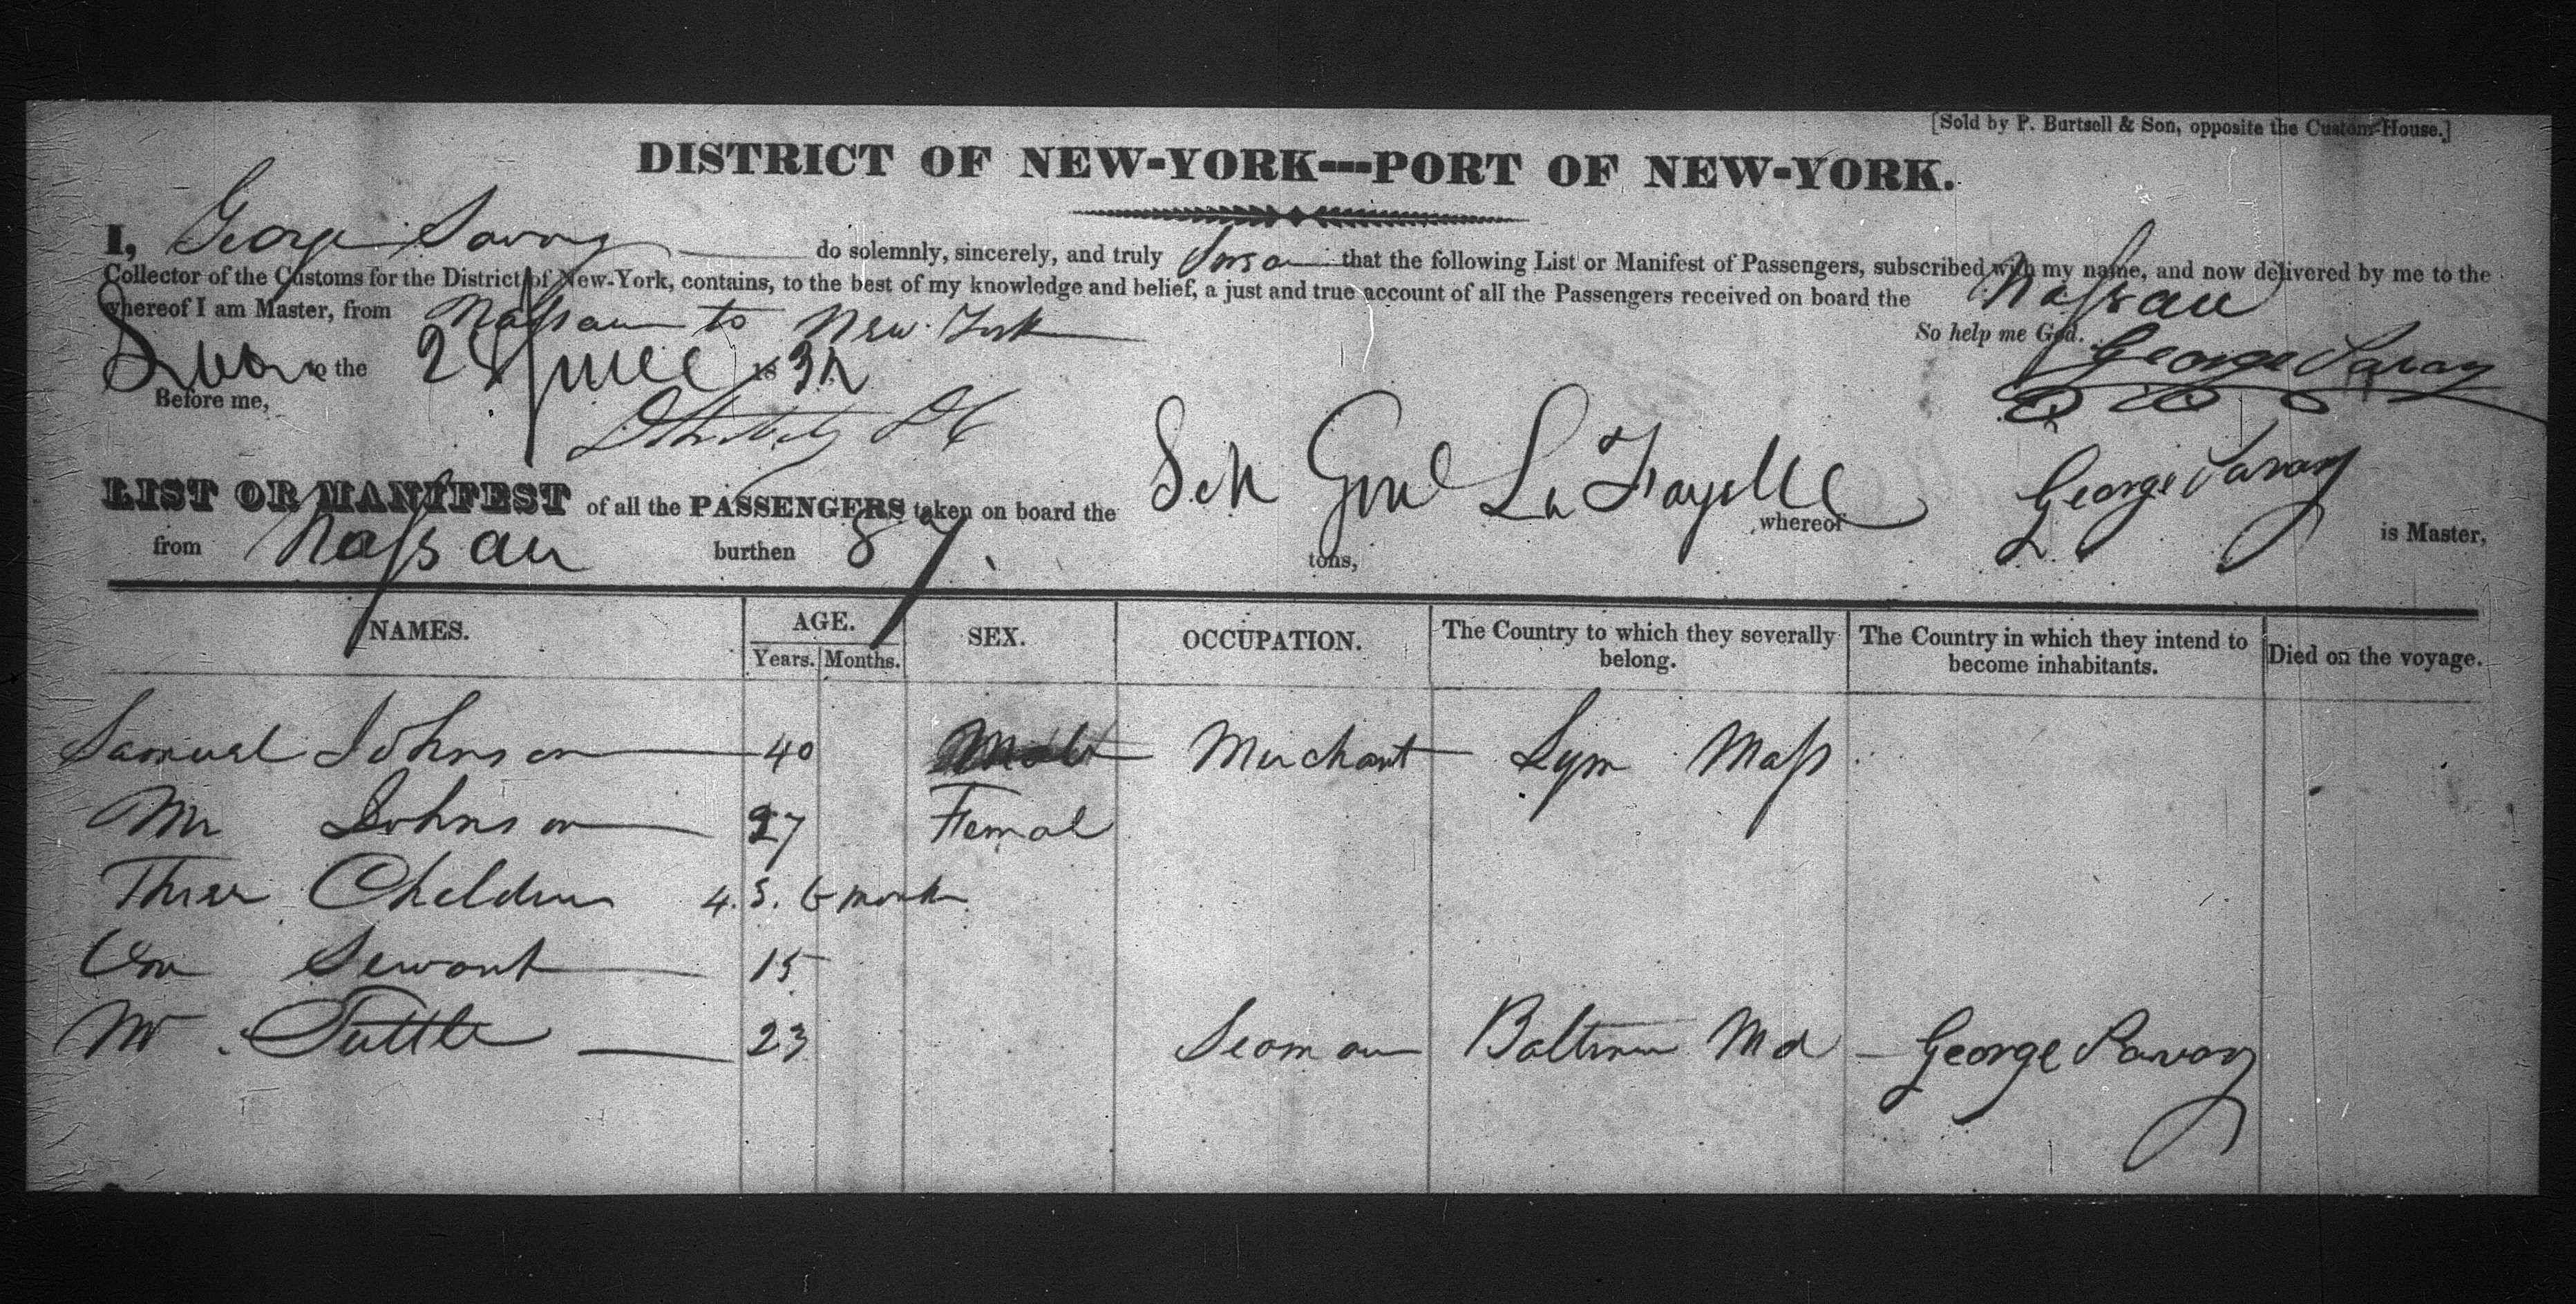 [Sold by P. Burtsell & Son, opposite the Custom-House.]
DISTRICT OF NEW-YORK---PORT OF NEW-YORK.
I, George Savary do solemnly, sincerely, and truly that the following List or Manifest of Passengers, subscribed with my name, and now delivered by me to the
Collector of the Customs for the District of New-York, contains, to the best of my knowledge and belief, a just and true account of all the Passengers received on board the Nassau
whereof I am Master, from Nassau to New York
So help me God. George Savary
to the 28 June 1832
Before me,
LIST OR MANIFEST of all the PASSENGERS taken on board the Sch Genl La Fayette whereof George Savary is Master,
from Nassau burthen 87 tons,
NAMES. AGE. Years. Months. SEX. OCCUPATION. The Country to which they severally belong. The Country in which they intend to become inhabitants. Died on the voyage.
Samuel Johnson 40 Male Merchant Lynn Mass
Mrs Johnson 27 Femal
Three Children 4. 3. 6 month
One Servant 15
Mr Tuttle 23 Seaman Baltimore Md George Savary